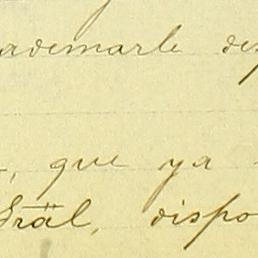 rademarle des
, que ya
Gräl, dispo